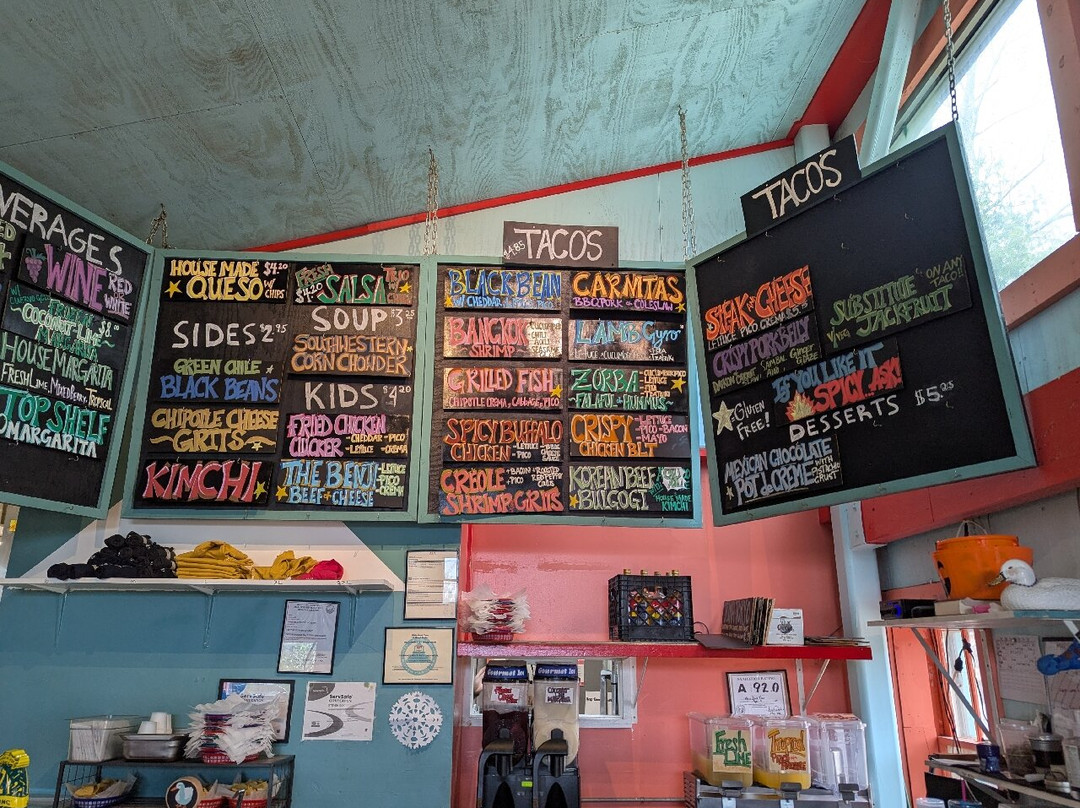 VERAGES
WINE
RED
OR
WHITE
COCONUT-LIME $8.00
MARGARITA
HOUSE MARGARITA
FRESH LIME, MIXED BERRY, TROPICAL
TOP SHELF
MARGARITA
HOUSE MADE $4.20
QUESO W/ CHIPS
FRESH
$4.20
SALSA
SIDES $2.95
GREEN CHILE
BLACK BEANS
CHIPOTLE CHEESE
GRITS
KIMCHI
SOUP $3.75
SOUTHWESTERN
CORN CHOWDER
KIDS $4.20
FRIED CHICKEN
CLUCKER
-CHEDDAR -PICO
-LETTUCE -CREMA
THE BENJI
BEEF & CHEESE
-LETTUCE
-PICO
-CREMA
$4.85
TACOS
BLACK BEAN
W/ CHEDDAR
PICO
CARNITAS
BBQ PORK & COLESLAW
BANGKOK
SHRIMP
LAMB Gyro
GRILLED FISH
CHIPOTLE CREMA, CABBAGE, PICO
ZORBA
FALAFUL & HUMMUS
-CUCUMBER
-LETTUCE
-PICO
-FETA
SPICY BUFFALO
CHICKEN
CRISPY
CHICKEN BLT
-LETTUCE
-PICO -BACON
-MAYO
CREOLE
SHRIMP GRITS
+BACON
+PICO
+ROASTED
RED PEPPER
COULIS
KOREAN BEEF
BULGOGI
W/ HOUSE MADE
KIMCHI
TACOS
STEAK & CHEESE
LETTUCE PICO CREMA
CRISPY PORK BELLY
SUBSTITUTE
JACKFRUIT
ON ANY
TACO!
IF YOU LIKE IT
SPICY, ASK!
GLUTEN
FREE!
DESSERTS $5.25
MEXICAN CHOCOLATE
POT de CREME
WITH
PISTACHIO
CRUST
ServSafe
ServSafe
Gourmet Ice
Gourmet Ice
A 92.0
Fresh
LIME
Tropical